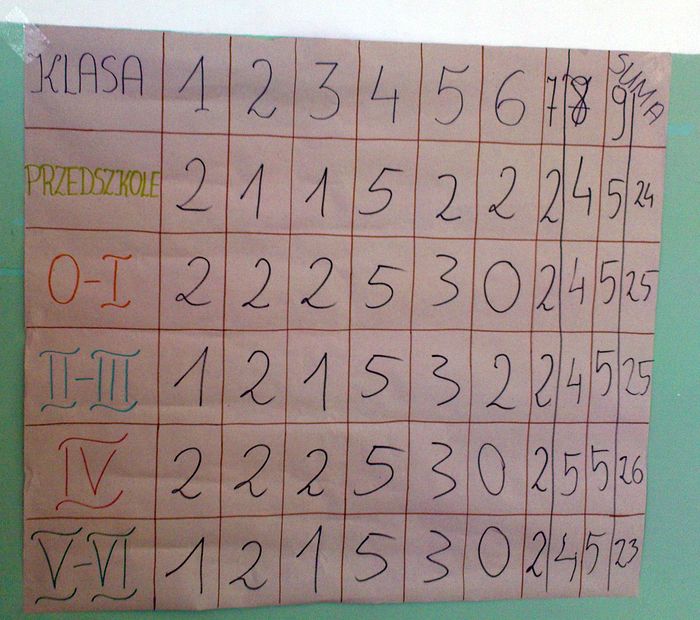 KLASA 1 2 3 4 5 6 7 8 9 SUMA
PRZEDSZKOLE 2 1 1 5 2 2 2 4 5 24
0-I 2 2 2 5 3 0 2 4 5 25
II-III 1 2 1 5 3 2 2 4 5 25
IV 2 2 2 5 3 0 2 5 5 26
V-VI 1 2 1 5 3 0 2 4 5 23